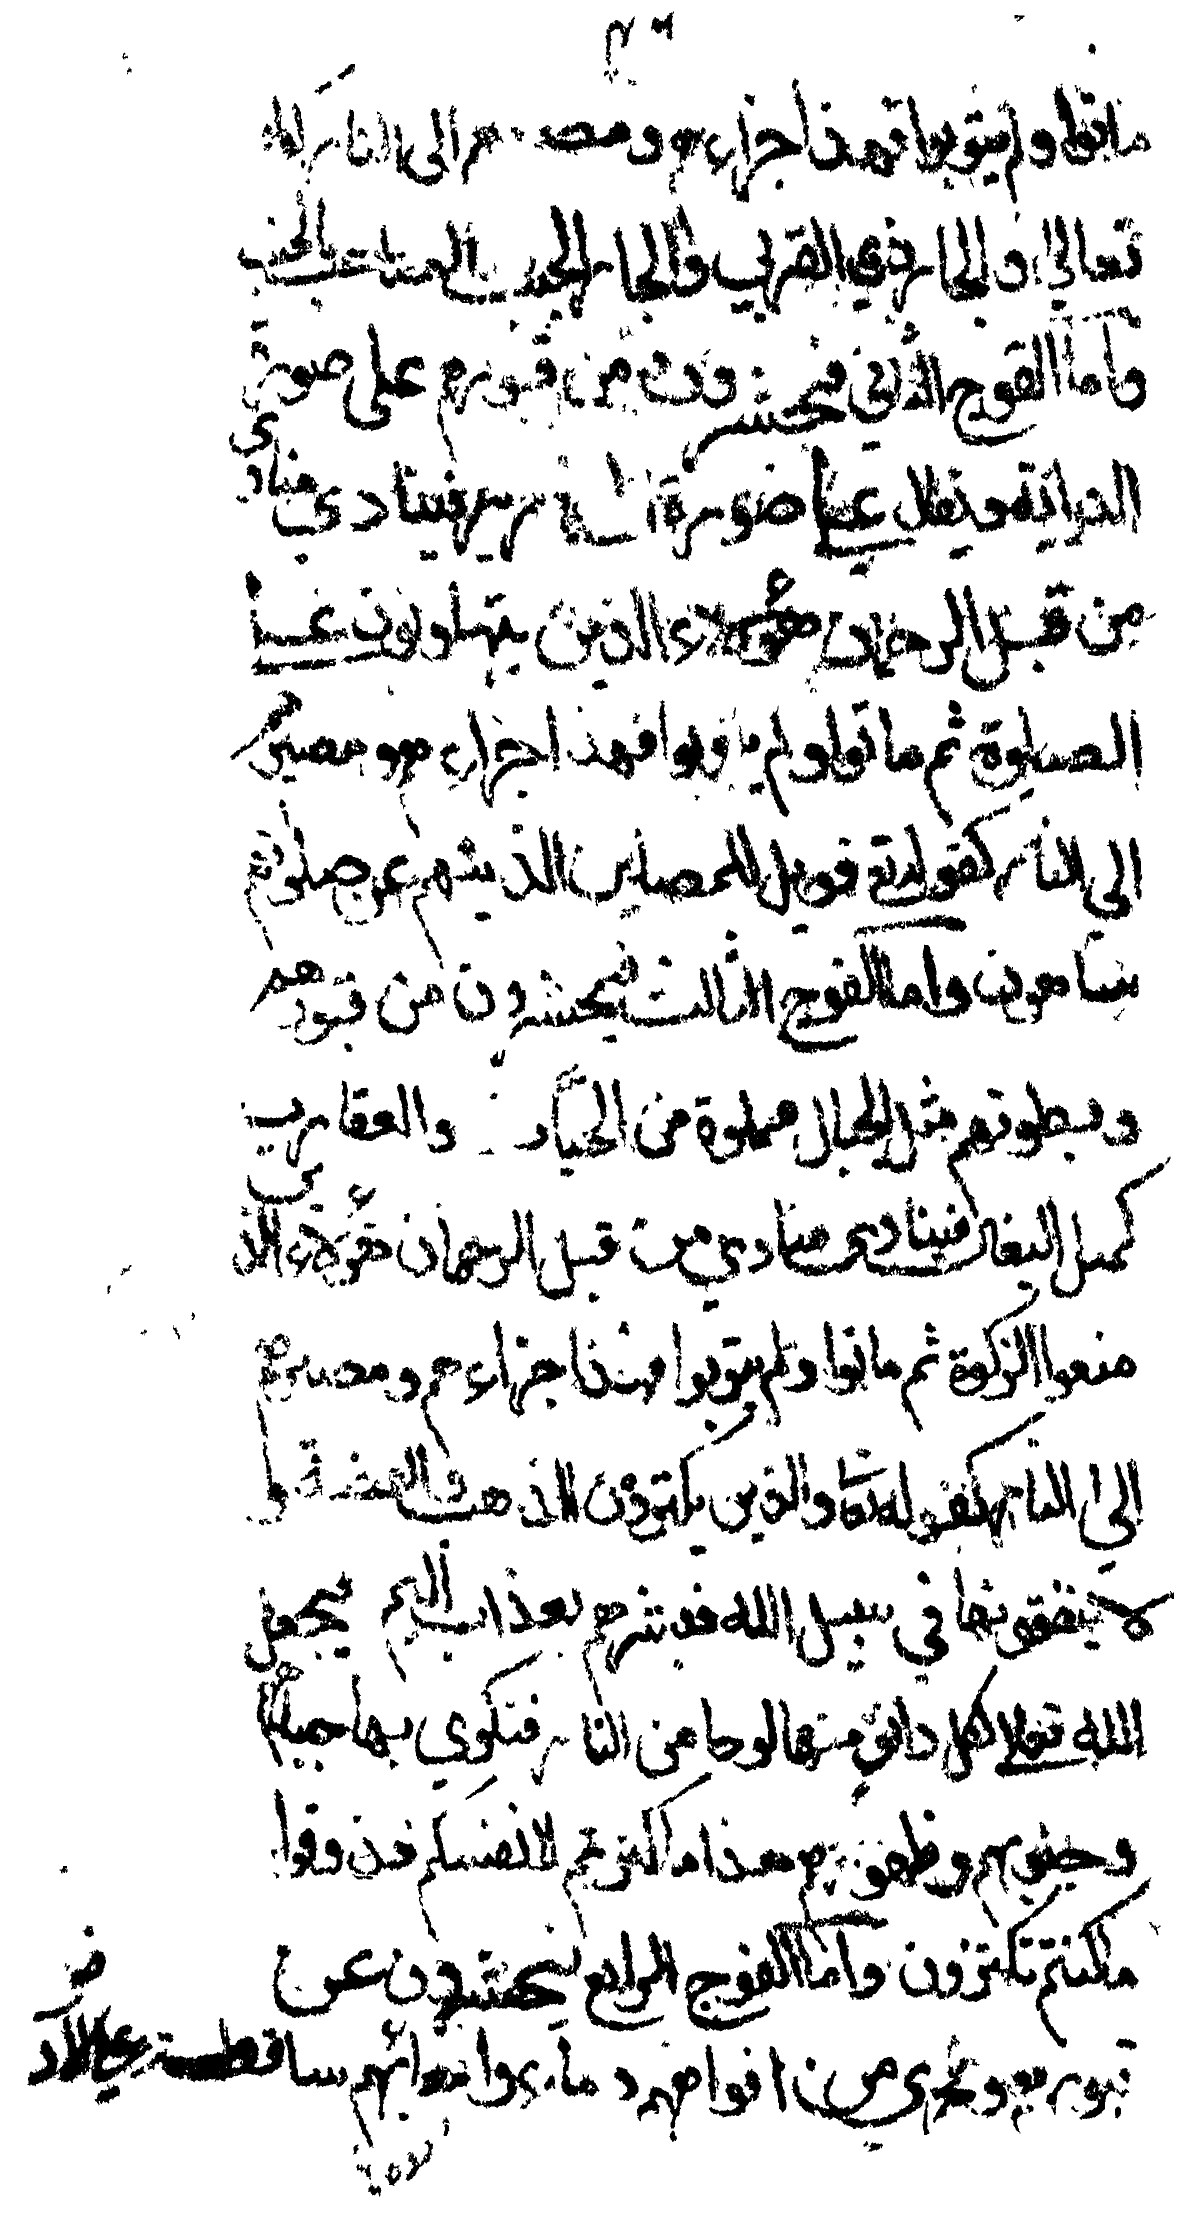 ماتوا ولم يتوبوا فهذا جزاءهم ومصيرهم الى النار كقوله
تعالى والجار ذي القربى والجار الجنب والصاحب بالجنب
واما الفوج الثاني فيحشرون من قبورهم على صورة
الدابة ويقال على صورة خنازير فينادي منادى
من قبل الرحمان هؤلاء الذين يتهاونون عن
الصلوة ثم ماتوا ولم يتوبوا فهذا جزاءهم ومصيرهم
الى النار كقوله تع فويل للمصلين الذينهم عن صلوتهم
ساهون واما الفوج الثالث فيحشرون من قبورهم
وبطونهم مثل الجبال مملوة من الحيات والعقارب
كمثل البغال فينادى منادي من قبل الرحمان هؤلاء الذين
منعوا الزكوة ثم ماتوا ولم يتوبوا فهذا جزاءهم ومصيرهم
الى النار كقوله تعا والذين يكنزون الذهب والفضة و
لا ينفقونها في سبيل الله فبشرهم بعذاب اليم فيجعل
الله تعالى لكل دانق منها لوحا من النار فتكوي بها جباههم
وجنوبهم وظهورهم هذا ما كنزتم لانفسكم فذوقوا
ما كنتم تكنزون واما الفوج الرابع فيحشرون عن
قبورهم وتجري من افواههم دما وامعائهم ساقطة على الارض